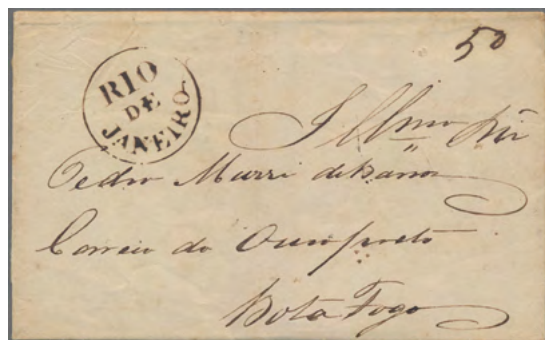 50
RIO
DE
JANEIRO
Illmo Snr
Pedro Murri de Barros
Correio do Ouro preto
Bota Fogo